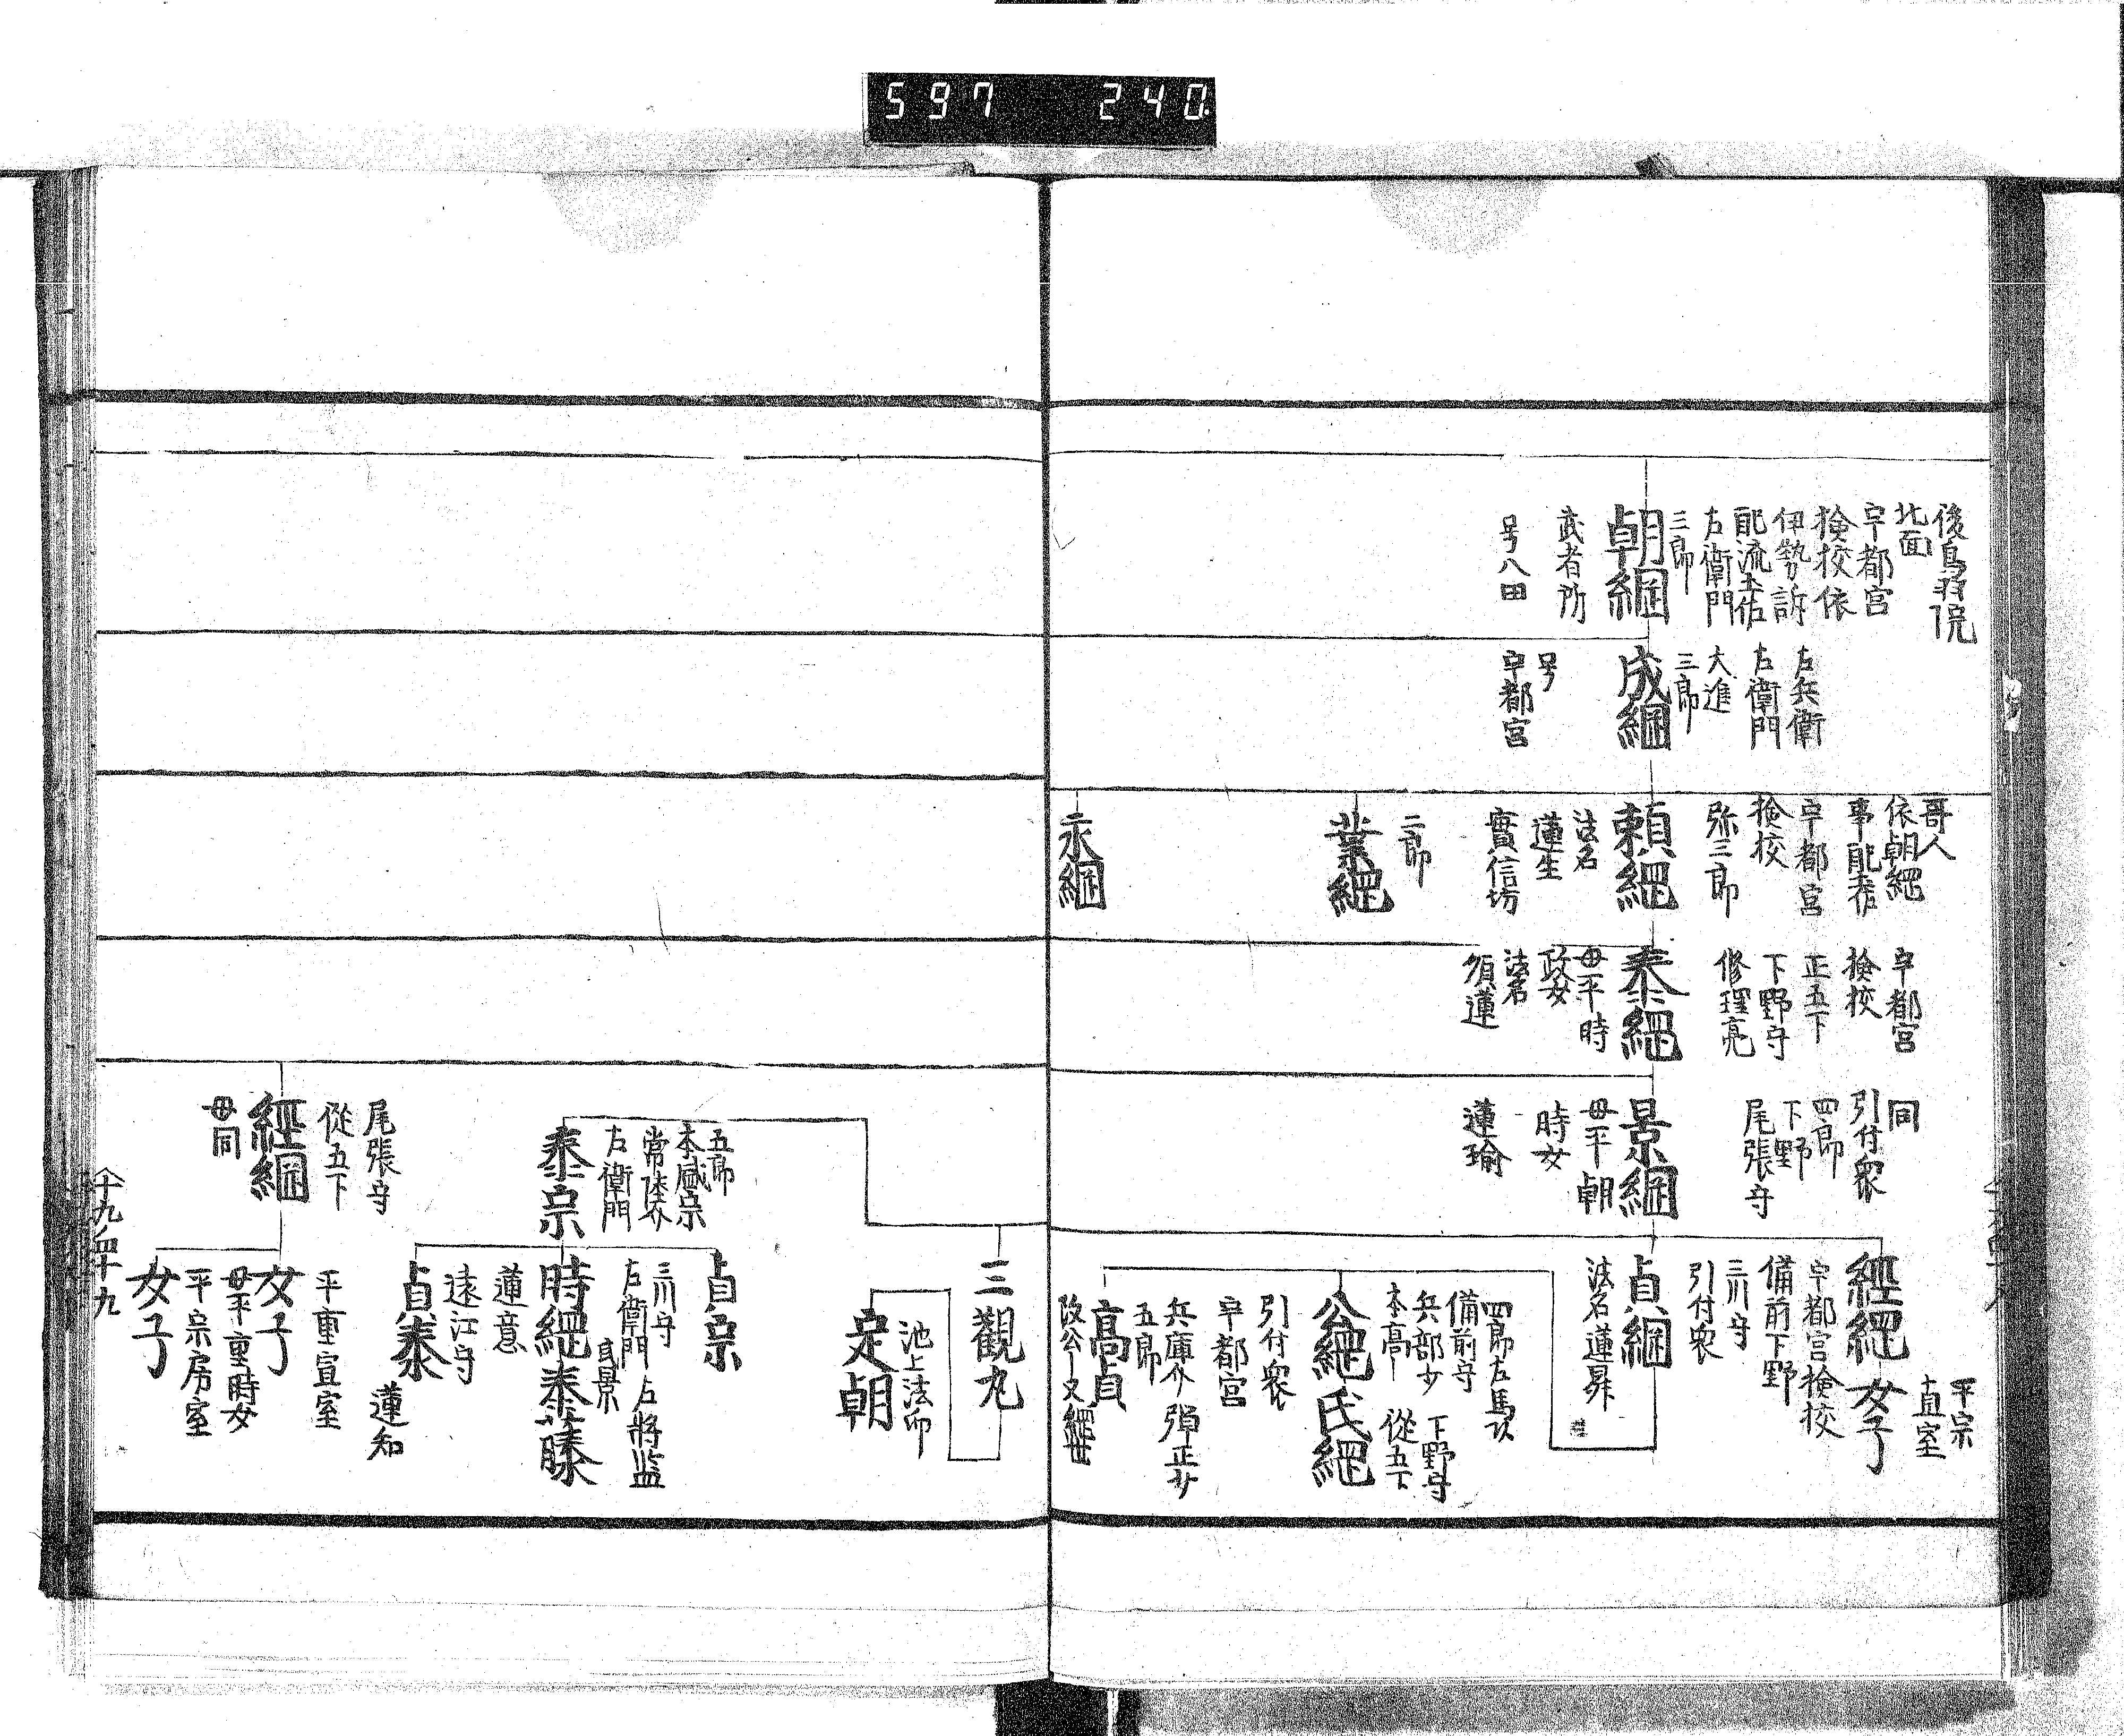 597 240
後鳥羽院
北面
宇都宮
撿挍依
伊勢訴
配流土佐
左衛門
三郎
朝綱
武者所
号八田
左兵衛
左衛門
大進
三郎
成綱
号
宇都宮
哥人
依朝綱
事配
宇都宮
撿挍
弥三郎
頼綱
法名
蓮生
實信坊
二郎
業綱
永綱
宇都宮
撿挍
正五下
下野守
修理亮
泰綱
母平時
政女
法名
順蓮
同
引付衆
四郎
下野
尾張守
景綱
母平朝
時女
蓮瑜
平宗
直室
女子
經綱
宇都宮撿挍
備前下野
三川守
引付衆
貞綱
法名蓮昇
四郎左馬
備前守 下野守
兵部少 從五下
本高
公綱 氏綱
引付衆
宇都宮
兵庫介 弾正少
五郎
高貞
改公又綱世
三觀丸
池上法印
定朝
五郎
本盛宗
常陸介
左衛門
泰宗
貞宗
三川守 左將監
左衛門
貞景
時綱 泰藤
蓮意
遠江守
貞泰
蓮知
尾張守
從五下
經綱
母同
平重宣室
女子
母平重時女
平宗房室
女子
十九ノ四十九